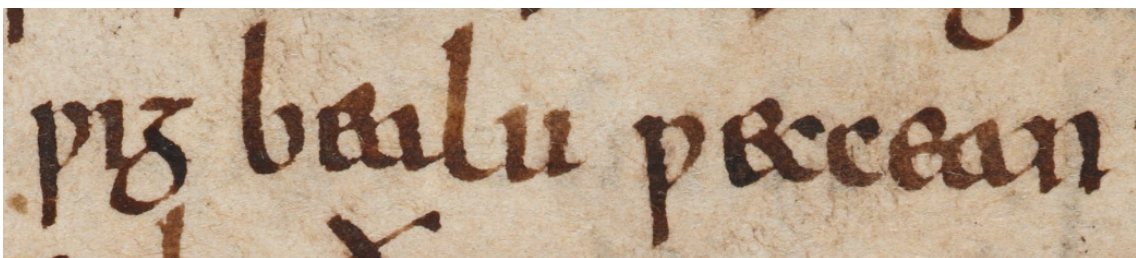 ƿig bealu ƿeccean